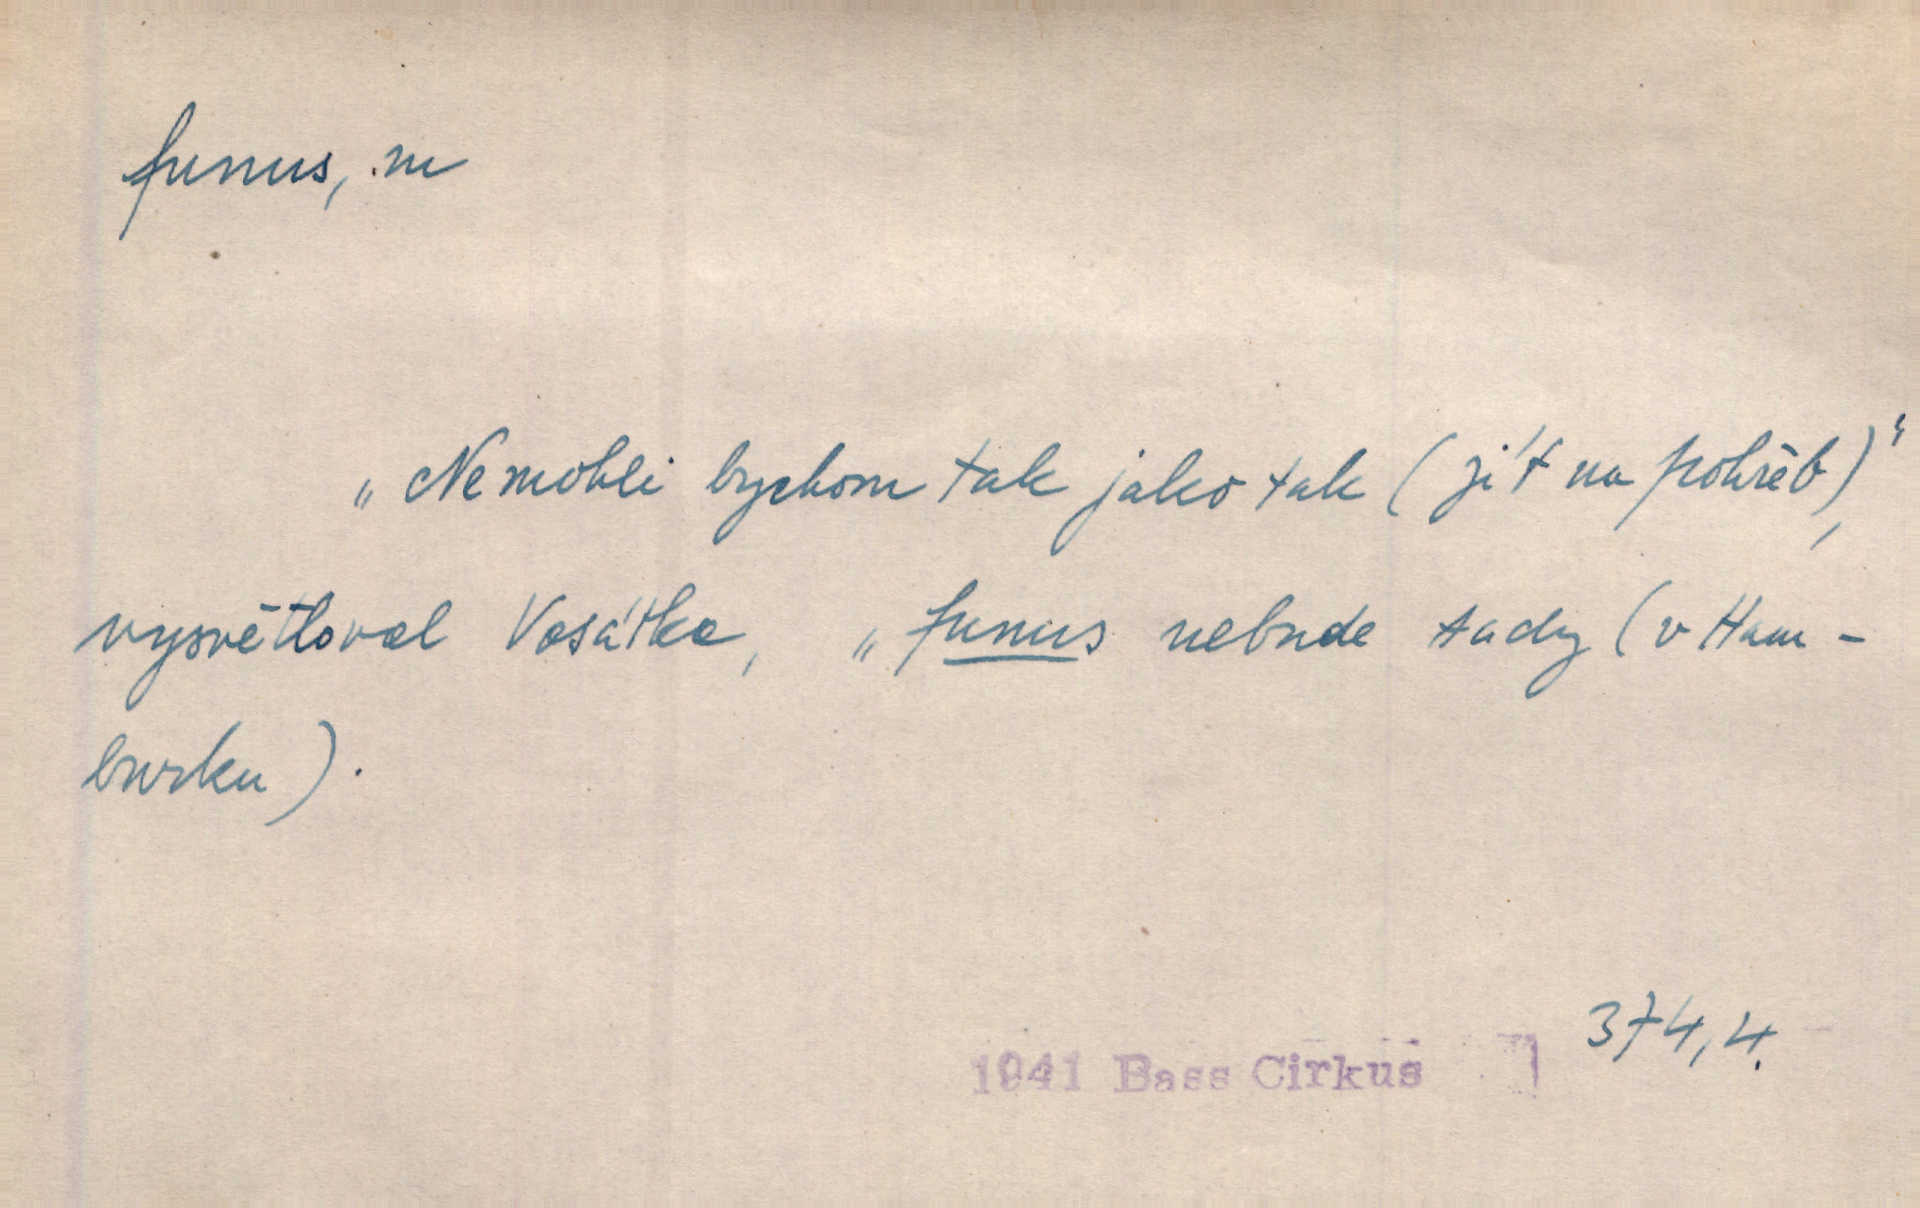 funus, m
„Nemohli bychom tak jako tak (jít na pohřeb)“,
vysvětloval Vosátka, „funus nebude tady (v Ham-
burku).
374,4.
1941 Bass Cirkus